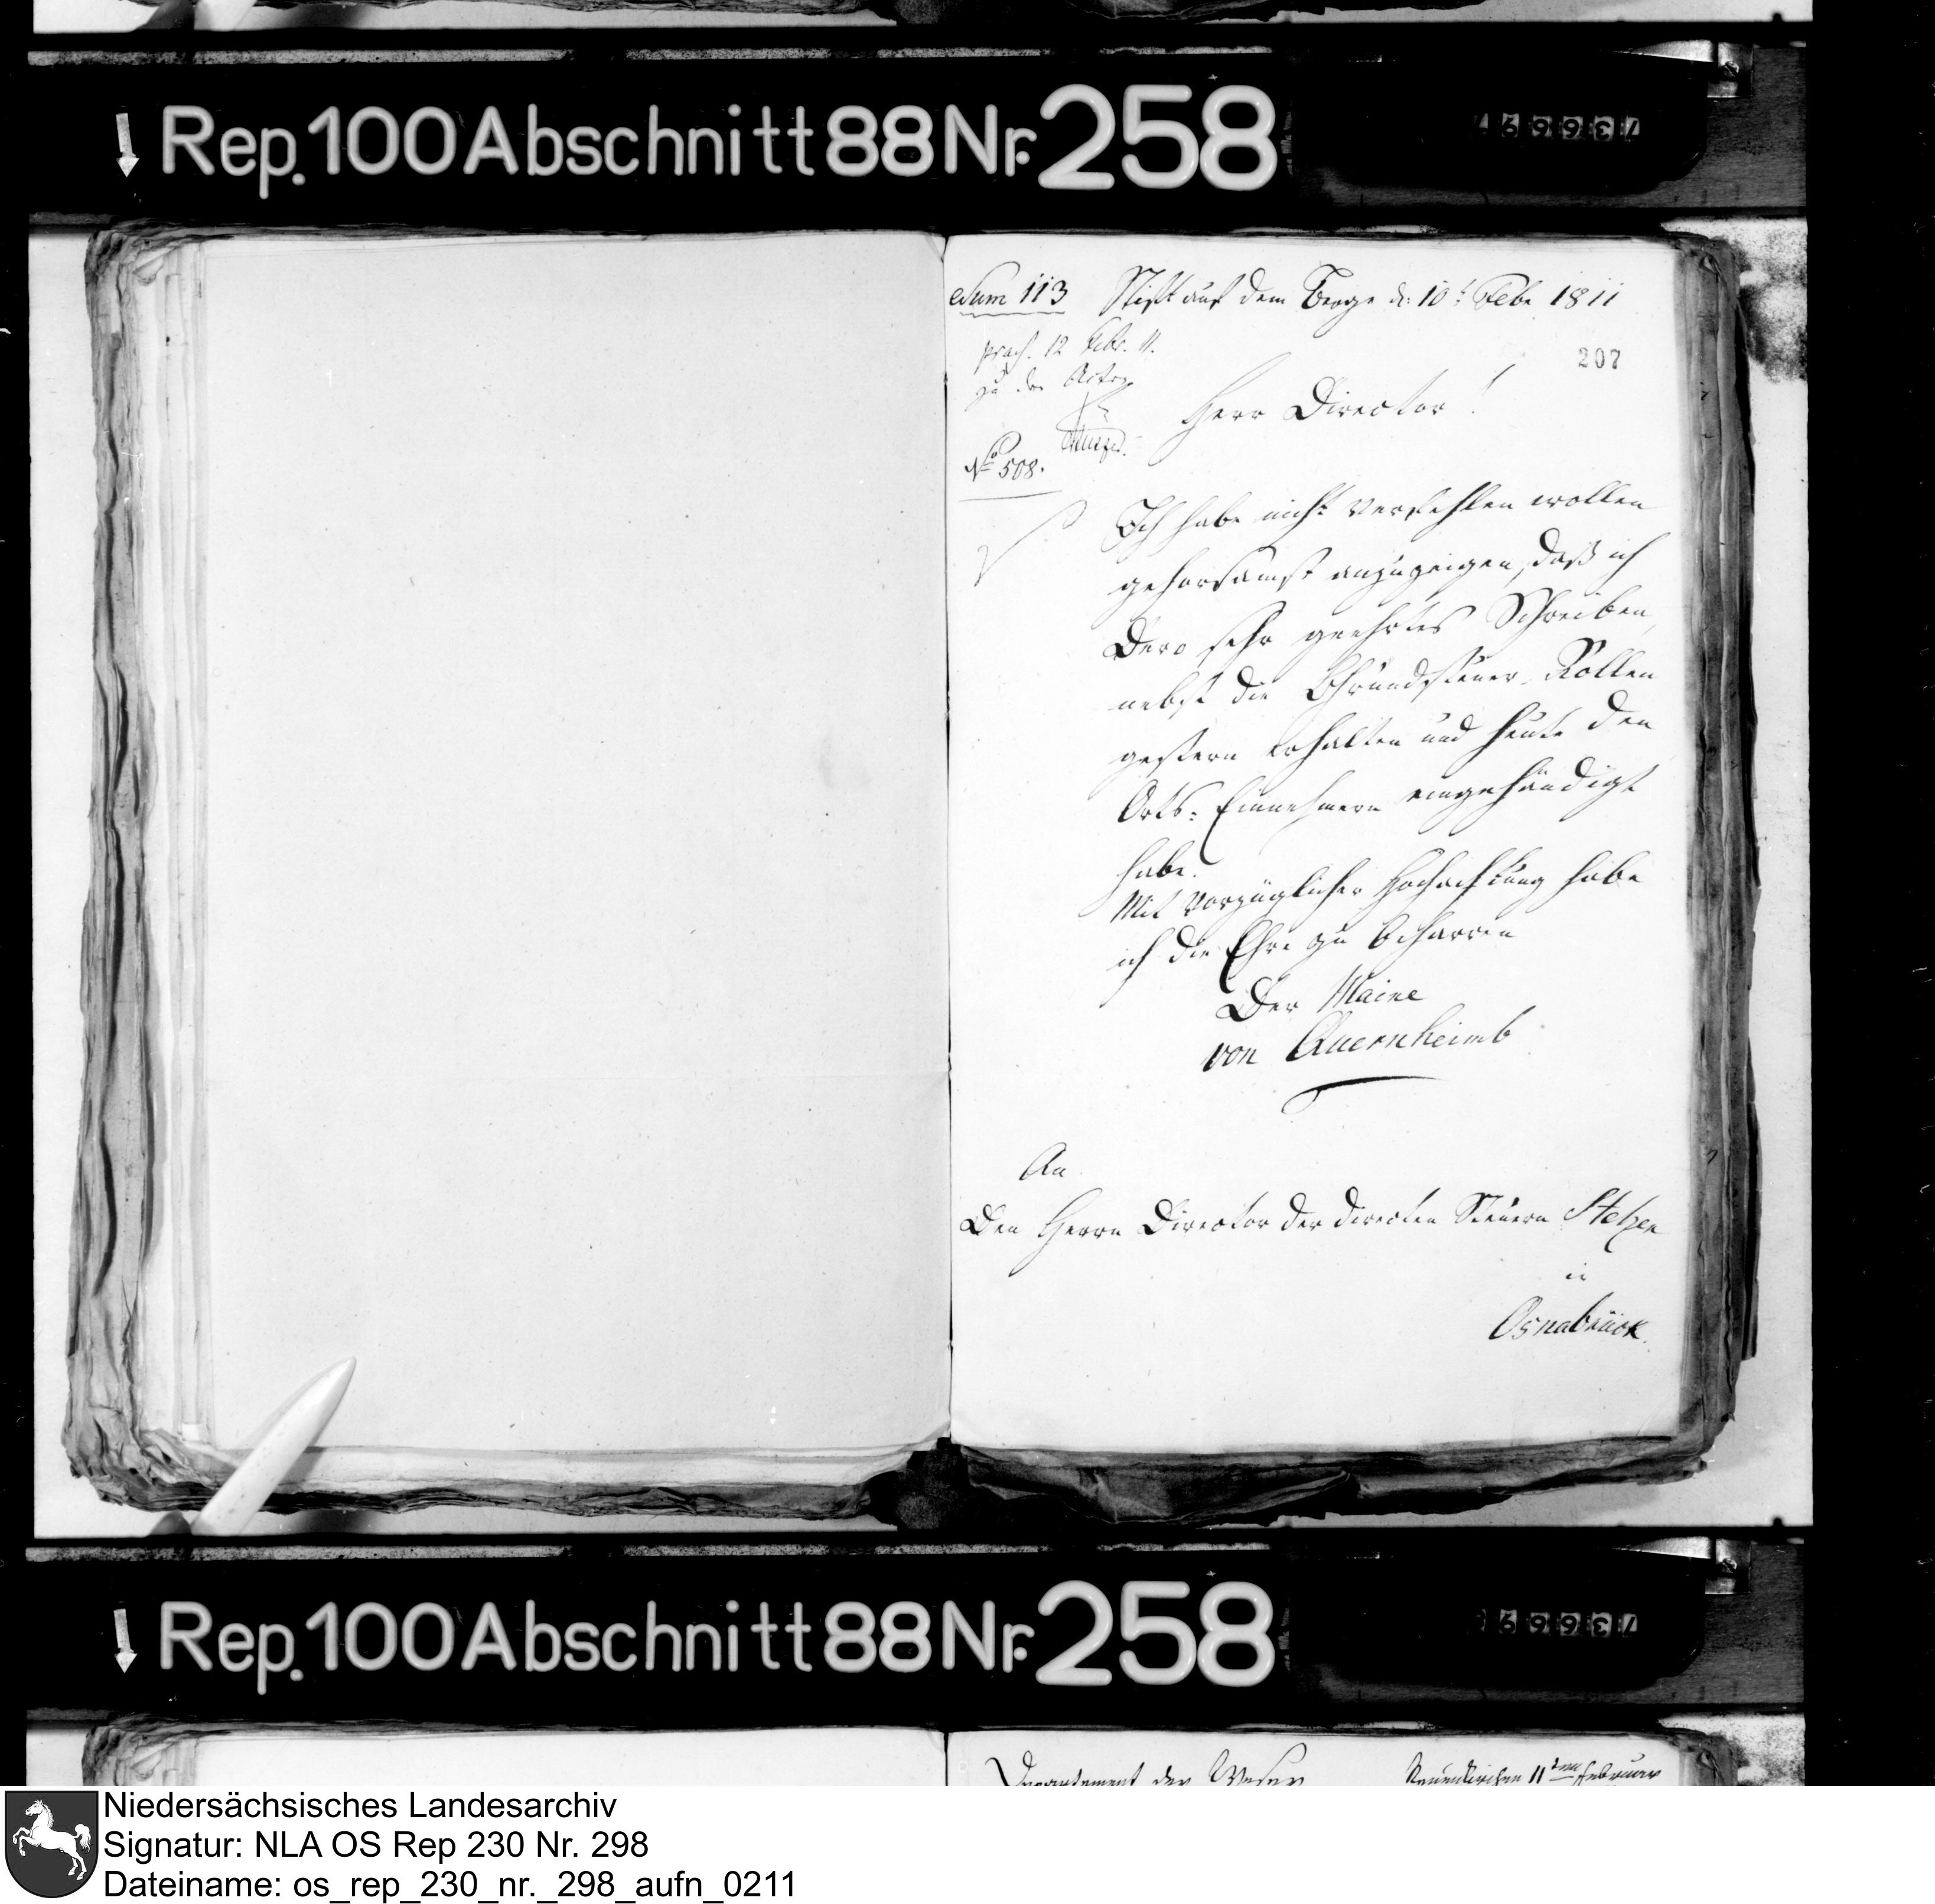 Rep. 100 Abschnitt 88 Nr. 258
736697
Num 113
Stift auf dem Berge d: 10t Febr 1811
praes. 12 Febr. 11.
zu den Acten
207
Herr Director!
No 508.
Ich habe nicht verfehlen wollen
gehorsamst anzuzeigen, daß ich
Dero sehr geehrtes Schreiben,
nebst die Grundsteuer-Rollen
gestern erhalten und heute den
Orts-Einnehmern eingehändigt
habe.
Mit vorzüglicher Hochachtung habe
ich die Ehre zu beharren
Der Maire
von Quernheimb
An
Den Herrn Director der directen Steuern Stelzen
in
Osnabrück.
Rep. 100 Abschnitt 88 Nr. 258
73669
Departement der Weser
Neuenkirchen 11ten Februar
Niedersächsisches Landesarchiv
Signatur: NLA OS Rep 230 Nr. 298
Dateiname: os_rep_230_nr._298_aufn_0211